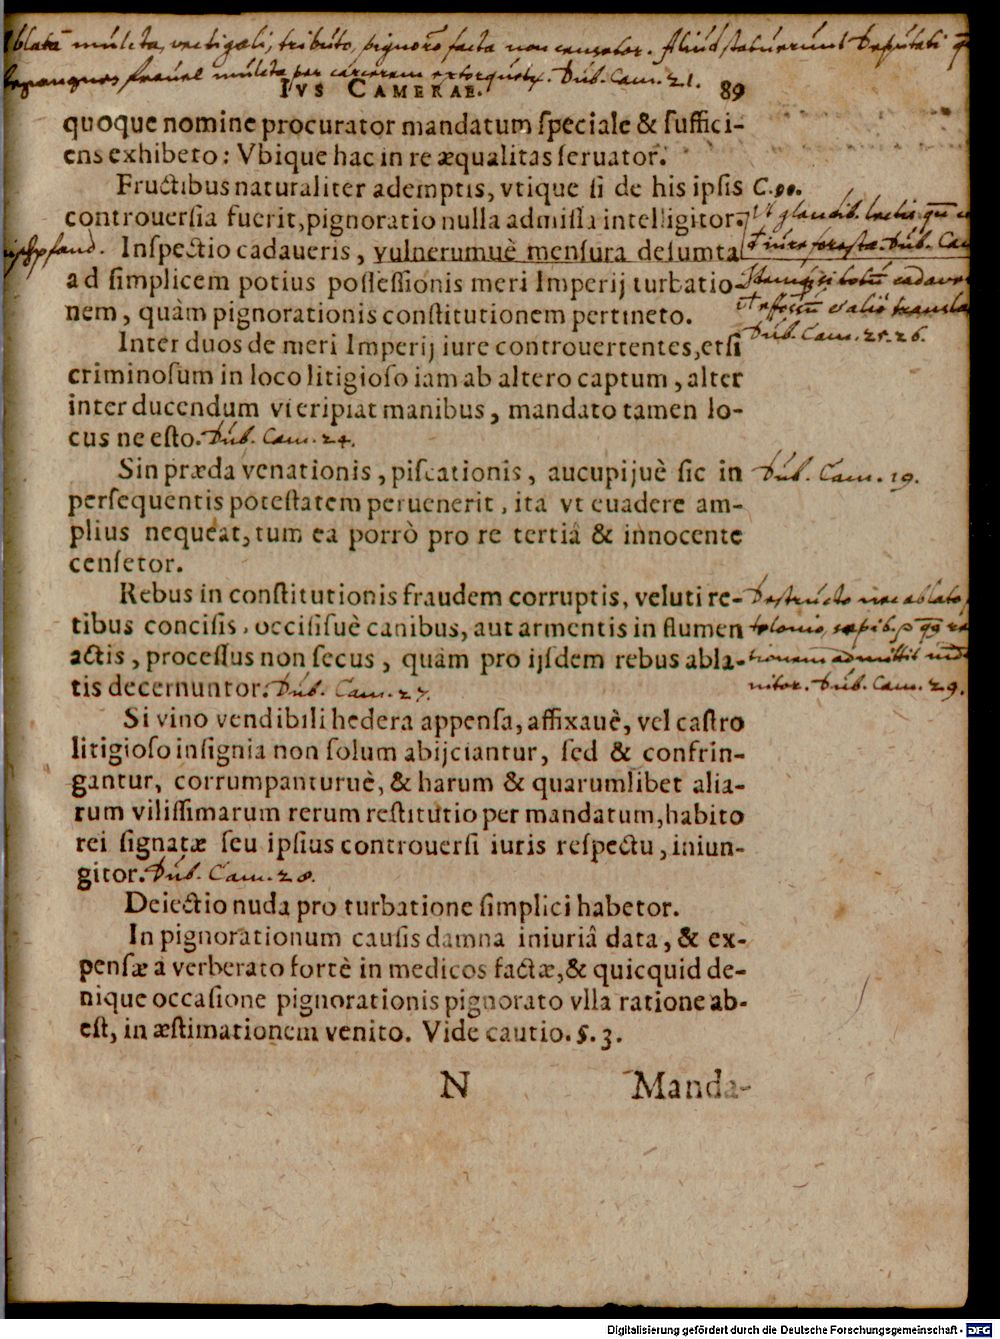 mulcta, vectigali, tributo, pignorõ facta non censetor. Aliud statuerunt Deputati
mulcta per carcerem Dub. Cam. 21.
IVS CAMERAE. 89
quoque nomine procurator mandatum speciale & suffici-
ens exhibeto: Vbique hac in re æqualitas seruator.
Fructibus naturaliter ademptis, vtique si de his ipsis
controuersia fuerit, pignoratio nulla admissa intelligitor.
Inspectio cadaueris, vulnerumuè mensura desumta
ad simplicem potius possessionis meri Imperij turbatio-
nem, quàm pignorationis constitutionem pertineto.
Inter duos de meri Imperij iure controuertentes, etsi
criminosum in loco litigioso iam ab altero captum, alter
inter ducendum vi eripiat manibus, mandato tamen lo-
cus ne esto. Dub. Cam. 24.
Sin præda venationis, piscationis, aucupijuè sic in
persequentis potestatem peruenerit, ita vt euadere am-
plius nequeat, tum ea porrò pro re tertiâ & innocente
censetor.
Rebus in constitutionis fraudem corruptis, veluti re-
tibus concisis, occisisuè canibus, aut armentis in flumen
actis, processus non secus, quàm pro ijsdem rebus abla-
tis decernuntor. Dub. Cam. 27.
Si vino vendibili hedera appensa, affixauè, vel castro
litigioso insignia non solum abijciantur, sed & confrin-
gantur, corrumpanturuè, & harum & quarumlibet alia-
rum vilissimarum rerum restitutio per mandatum, habito
rei signatæ seu ipsius controuersi iuris respectu, iniun-
gitor. Dub. Cam. 28.
Deiectio nuda pro turbatione simplici habetor.
In pignorationum causis damna iniuriâ data, & ex-
pensæ a verberato fortè in medicos factæ, & quicquid de-
nique occasione pignorationis pignorato vlla ratione ab-
est, in æstimationem venito. Vide cautio. §. 3.
N Manda-
Vt glandib. lectis
iure Dub. Cam.
Dub. Cam. 25. 26.
Dub. Cam. 19.
Destructo non ablato
telonio
admittit
nitor. Dub. Cam. 29.
Digitalisierung gefördert durch die Deutsche Forschungsgemeinschaft - DFG